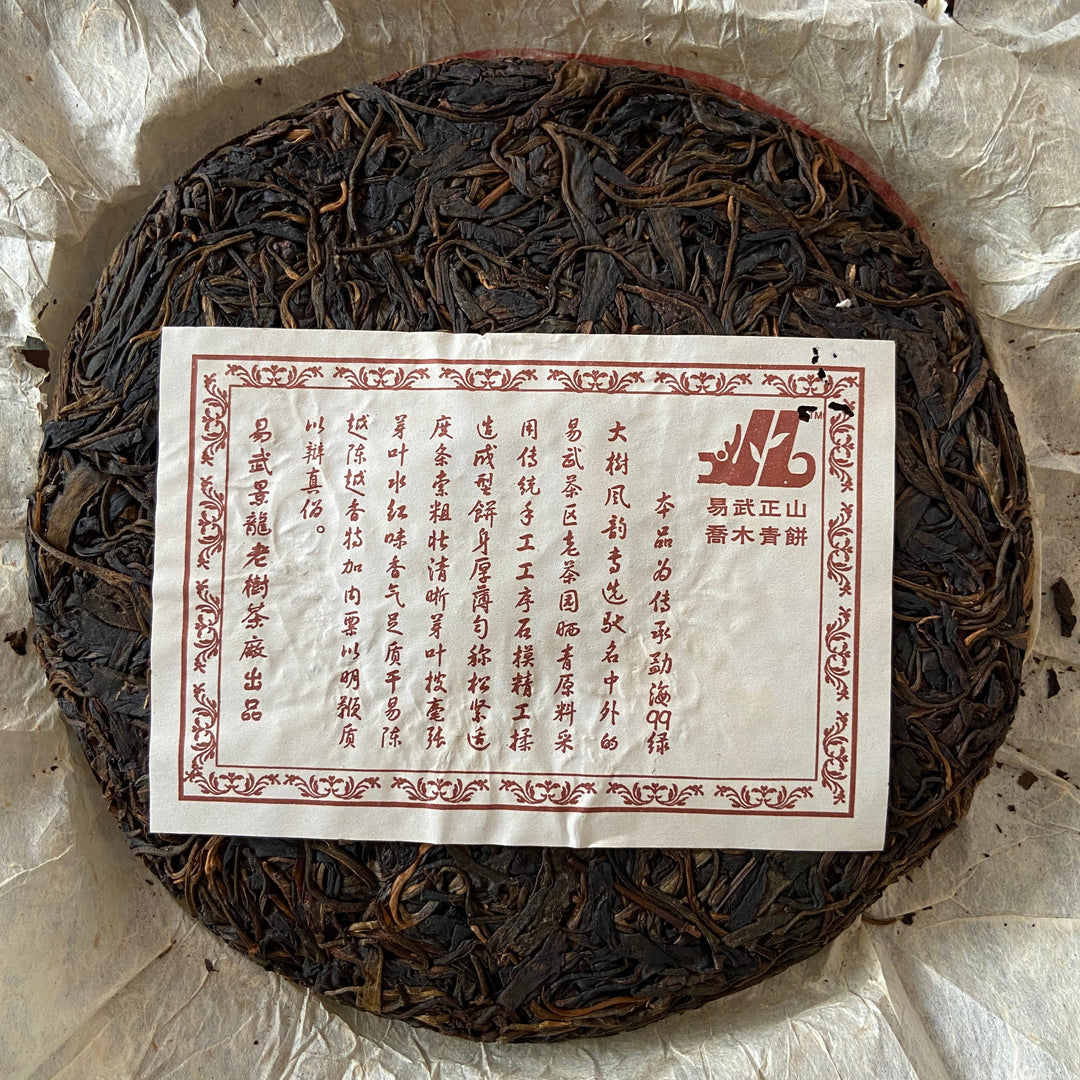 TM
易武正山
喬木青餅
本品为传承勐海99绿
大樹风韵专选驶名中外的
易武茶区老茶园晒青原料采
用传统手工工序石模精工揉
造成型餅身厚薄匀称松紧适
度条索粗壮清晰芽叶披毫张
芽叶水红味香气足质干易陈
越陈越香特加内票以明鞭质
以辩真佰。
易武景龍老樹茶廠出品